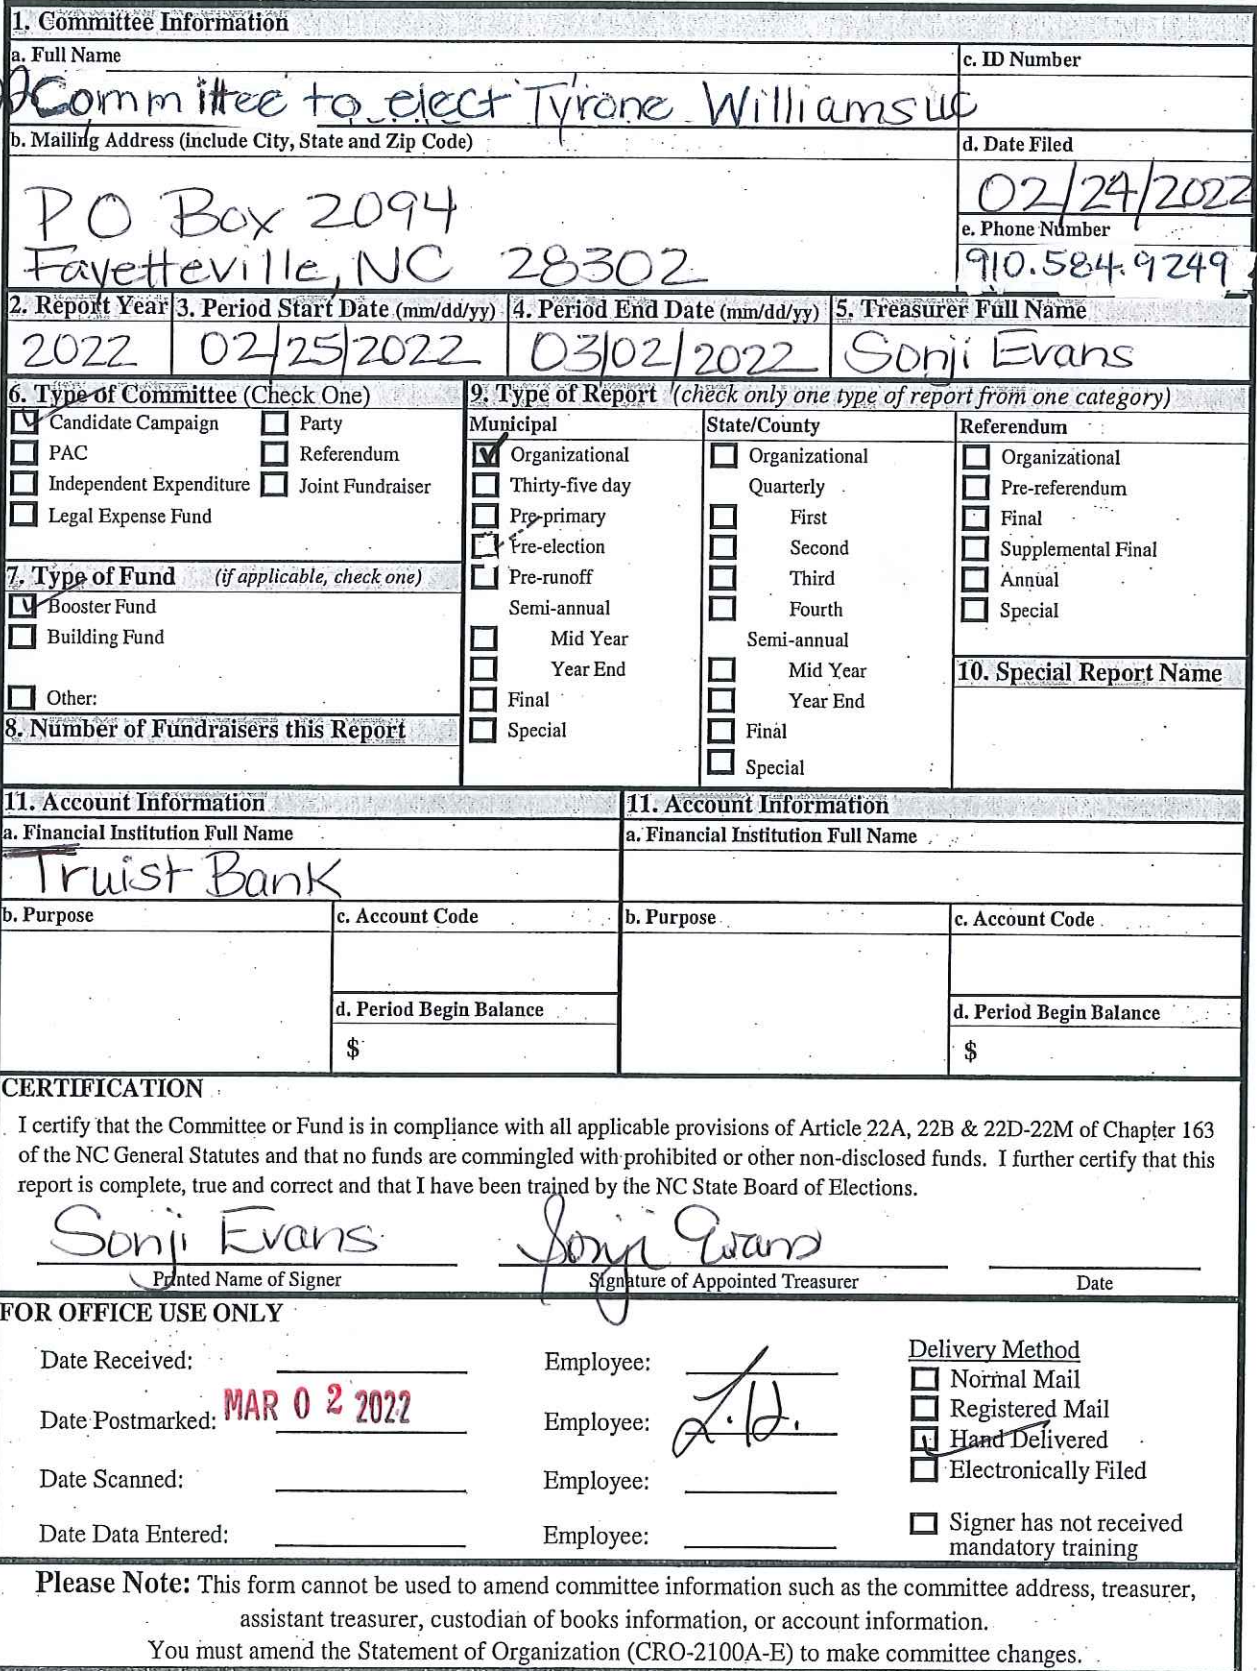 1. Committee Information
a. Full Name
c. ID Number
Committee to elect Tyrone Williams
b. Mailing Address (include City, State and Zip Code)
d. Date Filed
PO Box 2094
02/24/2022
e. Phone Number
Fayetteville, NC 28302
910.584.9249
2. Report Year
3. Period Start Date (mm/dd/yy)
4. Period End Date (mm/dd/yy)
5. Treasurer Full Name
2022
02/25/2022
03/02/2022
Sonji Evans
6. Type of Committee (Check One)
Candidate Campaign
Party
PAC
Referendum
Independent Expenditure
Joint Fundraiser
Legal Expense Fund
7. Type of Fund (if applicable, check one)
Booster Fund
Building Fund
Other:
8. Number of Fundraisers this Report
9. Type of Report (check only one type of report from one category)
Municipal
Organizational
Thirty-five day
Pre-primary
Pre-election
Pre-runoff
Semi-annual
Mid Year
Year End
Final
Special
State/County
Organizational
Quarterly
First
Second
Third
Fourth
Semi-annual
Mid Year
Year End
Final
Special
Referendum
Organizational
Pre-referendum
Final
Supplemental Final
Annual
Special
10. Special Report Name
11. Account Information
a. Financial Institution Full Name
Truist Bank
b. Purpose
c. Account Code
d. Period Begin Balance
$
11. Account Information
a. Financial Institution Full Name
b. Purpose
c. Account Code
d. Period Begin Balance
$
CERTIFICATION
I certify that the Committee or Fund is in compliance with all applicable provisions of Article 22A, 22B & 22D-22M of Chapter 163
of the NC General Statutes and that no funds are commingled with prohibited or other non-disclosed funds. I further certify that this
report is complete, true and correct and that I have been trained by the NC State Board of Elections.
Sonji Evans
Sonji Evans
Printed Name of Signer
Signature of Appointed Treasurer
Date
FOR OFFICE USE ONLY
Date Received:
Employee:
Date Postmarked: MAR 02 2022
Employee: L.H.
Date Scanned:
Employee:
Date Data Entered:
Employee:
Delivery Method
Normal Mail
Registered Mail
Hand Delivered
Electronically Filed
Signer has not received
mandatory training
Please Note: This form cannot be used to amend committee information such as the committee address, treasurer,
assistant treasurer, custodian of books information, or account information.
You must amend the Statement of Organization (CRO-2100A-E) to make committee changes.